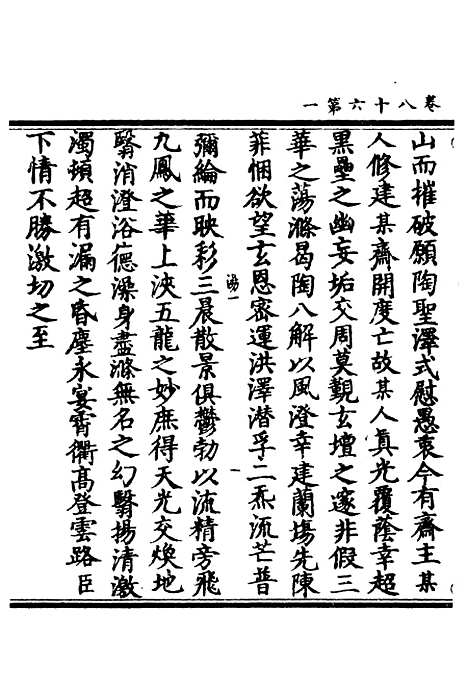 卷八十六第一
山而摧破願陶聖澤式慰愚衷今有齋主某
人修建某齋開度亡故某人眞光覆蔭幸超
黒壘之幽妄垢交周莫覩玄壇之邃非假三
華之蕩滌曷陶八解以風澄幸建蘭場先陳
菲悃欲望玄恩密運洪澤潜孚二炁流芒普
湯一
彌綸而映彩三晨散景俱鬱勃以流精旁飛
九鳳之華上浹五龍之妙庶得天光交煥地
翳消澄浴德澡身盡滌無名之幻翳揚清激
濁頓超有漏之昏塵永宴霄衢髙登雲路臣
下情不勝激切之至